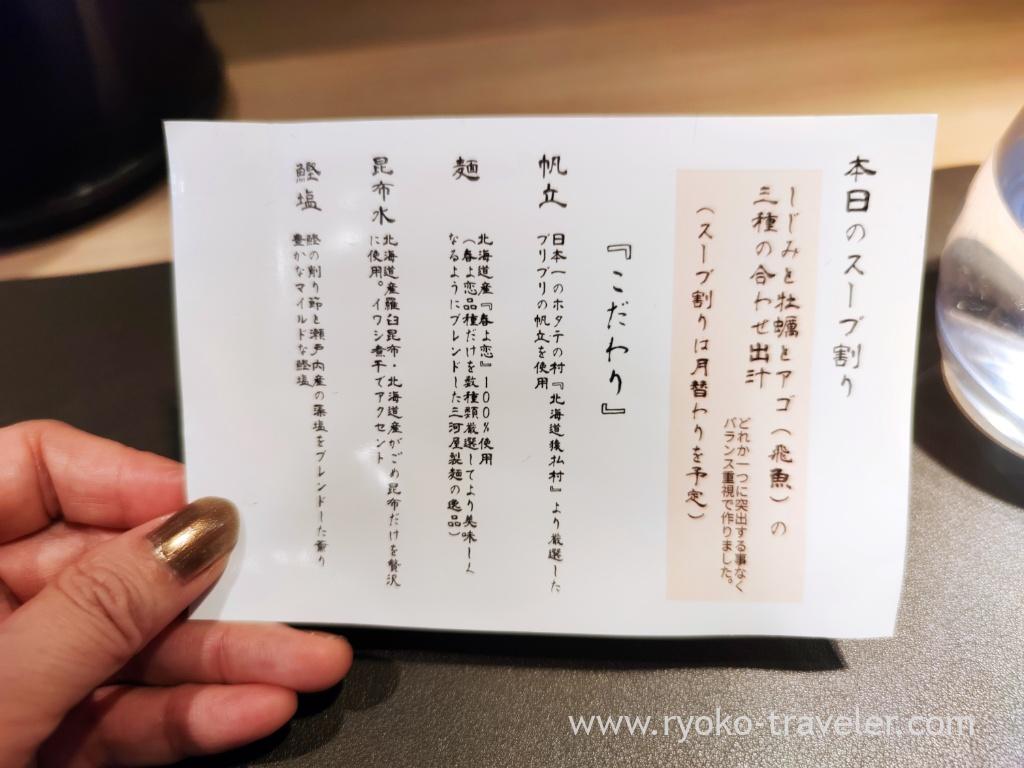 本日のスープ割り
しじみと牡蠣とアゴ（飛魚）の
三種の合わせ出汁
どれか一つに突出する事なく
バランス重視で作りました。
（スープ割りは月替わりを予定）
『こだわり』
帆立
日本一のホタテの村『北海道猿払村』より厳選した
プリプリの帆立を使用
麺
北海道産『春よ恋』100％使用
（春よ恋品種だけを数種類厳選してより美味しく
なるようにブレンドした三河屋製麺の逸品）
昆布水
北海道産羅臼昆布・北海道産がごめ昆布だけを贅沢
に使用。イワシ煮干でアクセント
鰹塩
鰹の削り節と瀬戸内産の藻塩をブレンドした香り
豊かなマイルドな鰹塩
www.ryoko-traveler.com